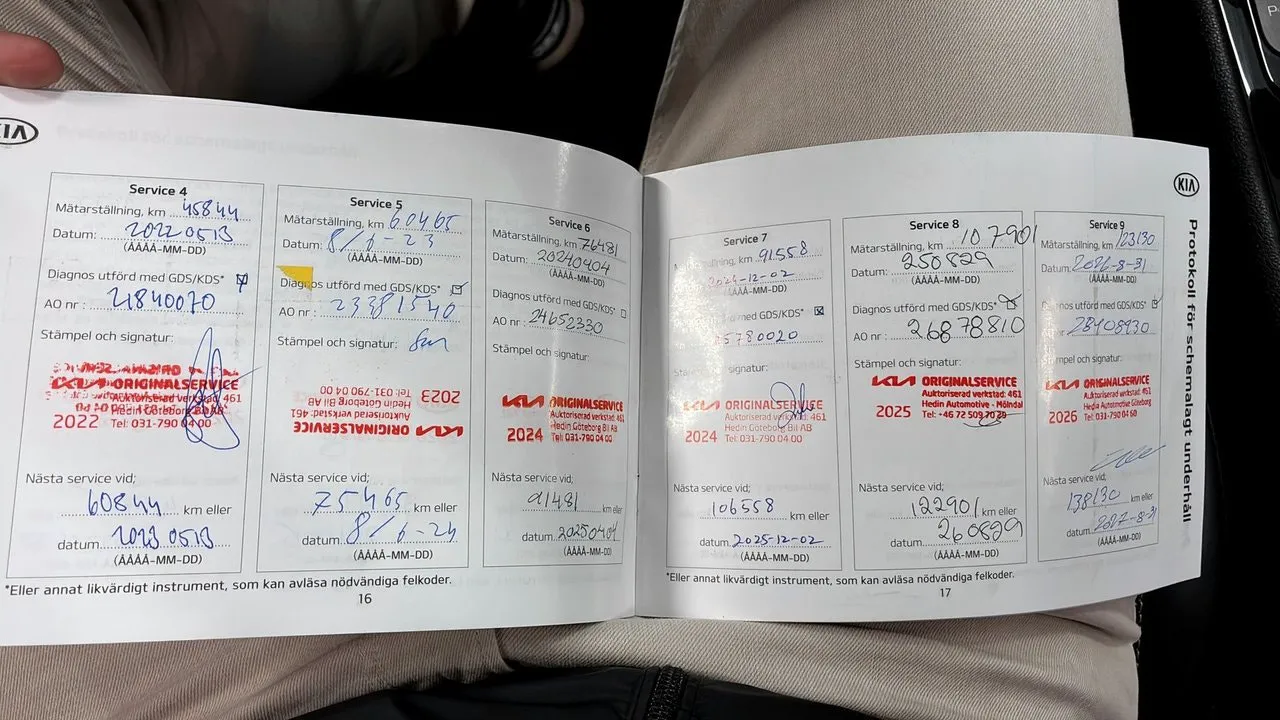 KIA
Service 4
Mätarställning, km 45844
Datum: 20220513
(ÅÅÅÅ-MM-DD)
Diagnos utförd med GDS/KDS*
AO nr : 21840070
Stämpel och signatur:
KIA ORIGINALSERVICE
Auktoriserad verkstad 461
Hedin Göteborg Bil AB
2022 Tel: 031-790 04 00
Nästa service vid;
60844 km eller
datum 20230513
(ÅÅÅÅ-MM-DD)
Service 5
Mätarställning, km 60465
Datum: 8/6-23
(ÅÅÅÅ-MM-DD)
Diagnos utförd med GDS/KDS*
AO nr : 23381540
Stämpel och signatur:
KIA ORIGINALSERVICE
Auktoriserad verkstad: 461
Hedin Göteborg Bil AB
2023 Tel: 031-790 04 00
Nästa service vid;
75465 km eller
datum 8/6-24
(ÅÅÅÅ-MM-DD)
Service 6
Mätarställning, km 76481
Datum: 20240404
(ÅÅÅÅ-MM-DD)
Diagnos utförd med GDS/KDS*
AO nr : 24652330
Stämpel och signatur:
KIA ORIGINALSERVICE
Auktoriserad verkstad: 461
Hedin Göteborg Bil AB
2024 Tel: 031-790 04 00
Nästa service vid;
91481 km eller
datum 20250404
(ÅÅÅÅ-MM-DD)
*Eller annat likvärdigt instrument, som kan avläsa nödvändiga felkoder.
16
KIA
Protokoll för schemalagt underhåll
Service 7
km 91558
2024-12-02
(ÅÅÅÅ-MM-DD)
med GDS/KDS*
5780020
signatur:
KIA ORIGINALSERVICE
Auktoriserad verkstad: 461
Hedin Göteborg Bil AB
2024 Tel: 031-790 04 00
Nästa service vid;
106558 km eller
datum 2025-12-02
(ÅÅÅÅ-MM-DD)
Service 8
Mätarställning, km 107901
Datum: 250829
(ÅÅÅÅ-MM-DD)
Diagnos utförd med GDS/KDS*
AO nr : 26878810
Stämpel och signatur:
KIA ORIGINALSERVICE
Auktoriserad verkstad: 461
Hedin Automotive - Mölndal
2025 Tel: +46 72 509 70 29
Nästa service vid;
122901 km eller
datum 260829
(ÅÅÅÅ-MM-DD)
Service 9
Mätarställning, km 123130
Datum: 2026-8-31
(ÅÅÅÅ-MM-DD)
utförd med GDS/KDS*
AO nr : 28408930
Stämpel och signatur:
KIA ORIGINALSERVICE
Auktoriserad verkstad: 461
Hedin Automotive Göteborg
2026 Tel: 031-790 04 00
Nästa service vid;
138130 km eller
datum 2027-8-31
(ÅÅÅÅ-MM-DD)
*Eller annat likvärdigt instrument, som kan avläsa nödvändiga felkoder.
17